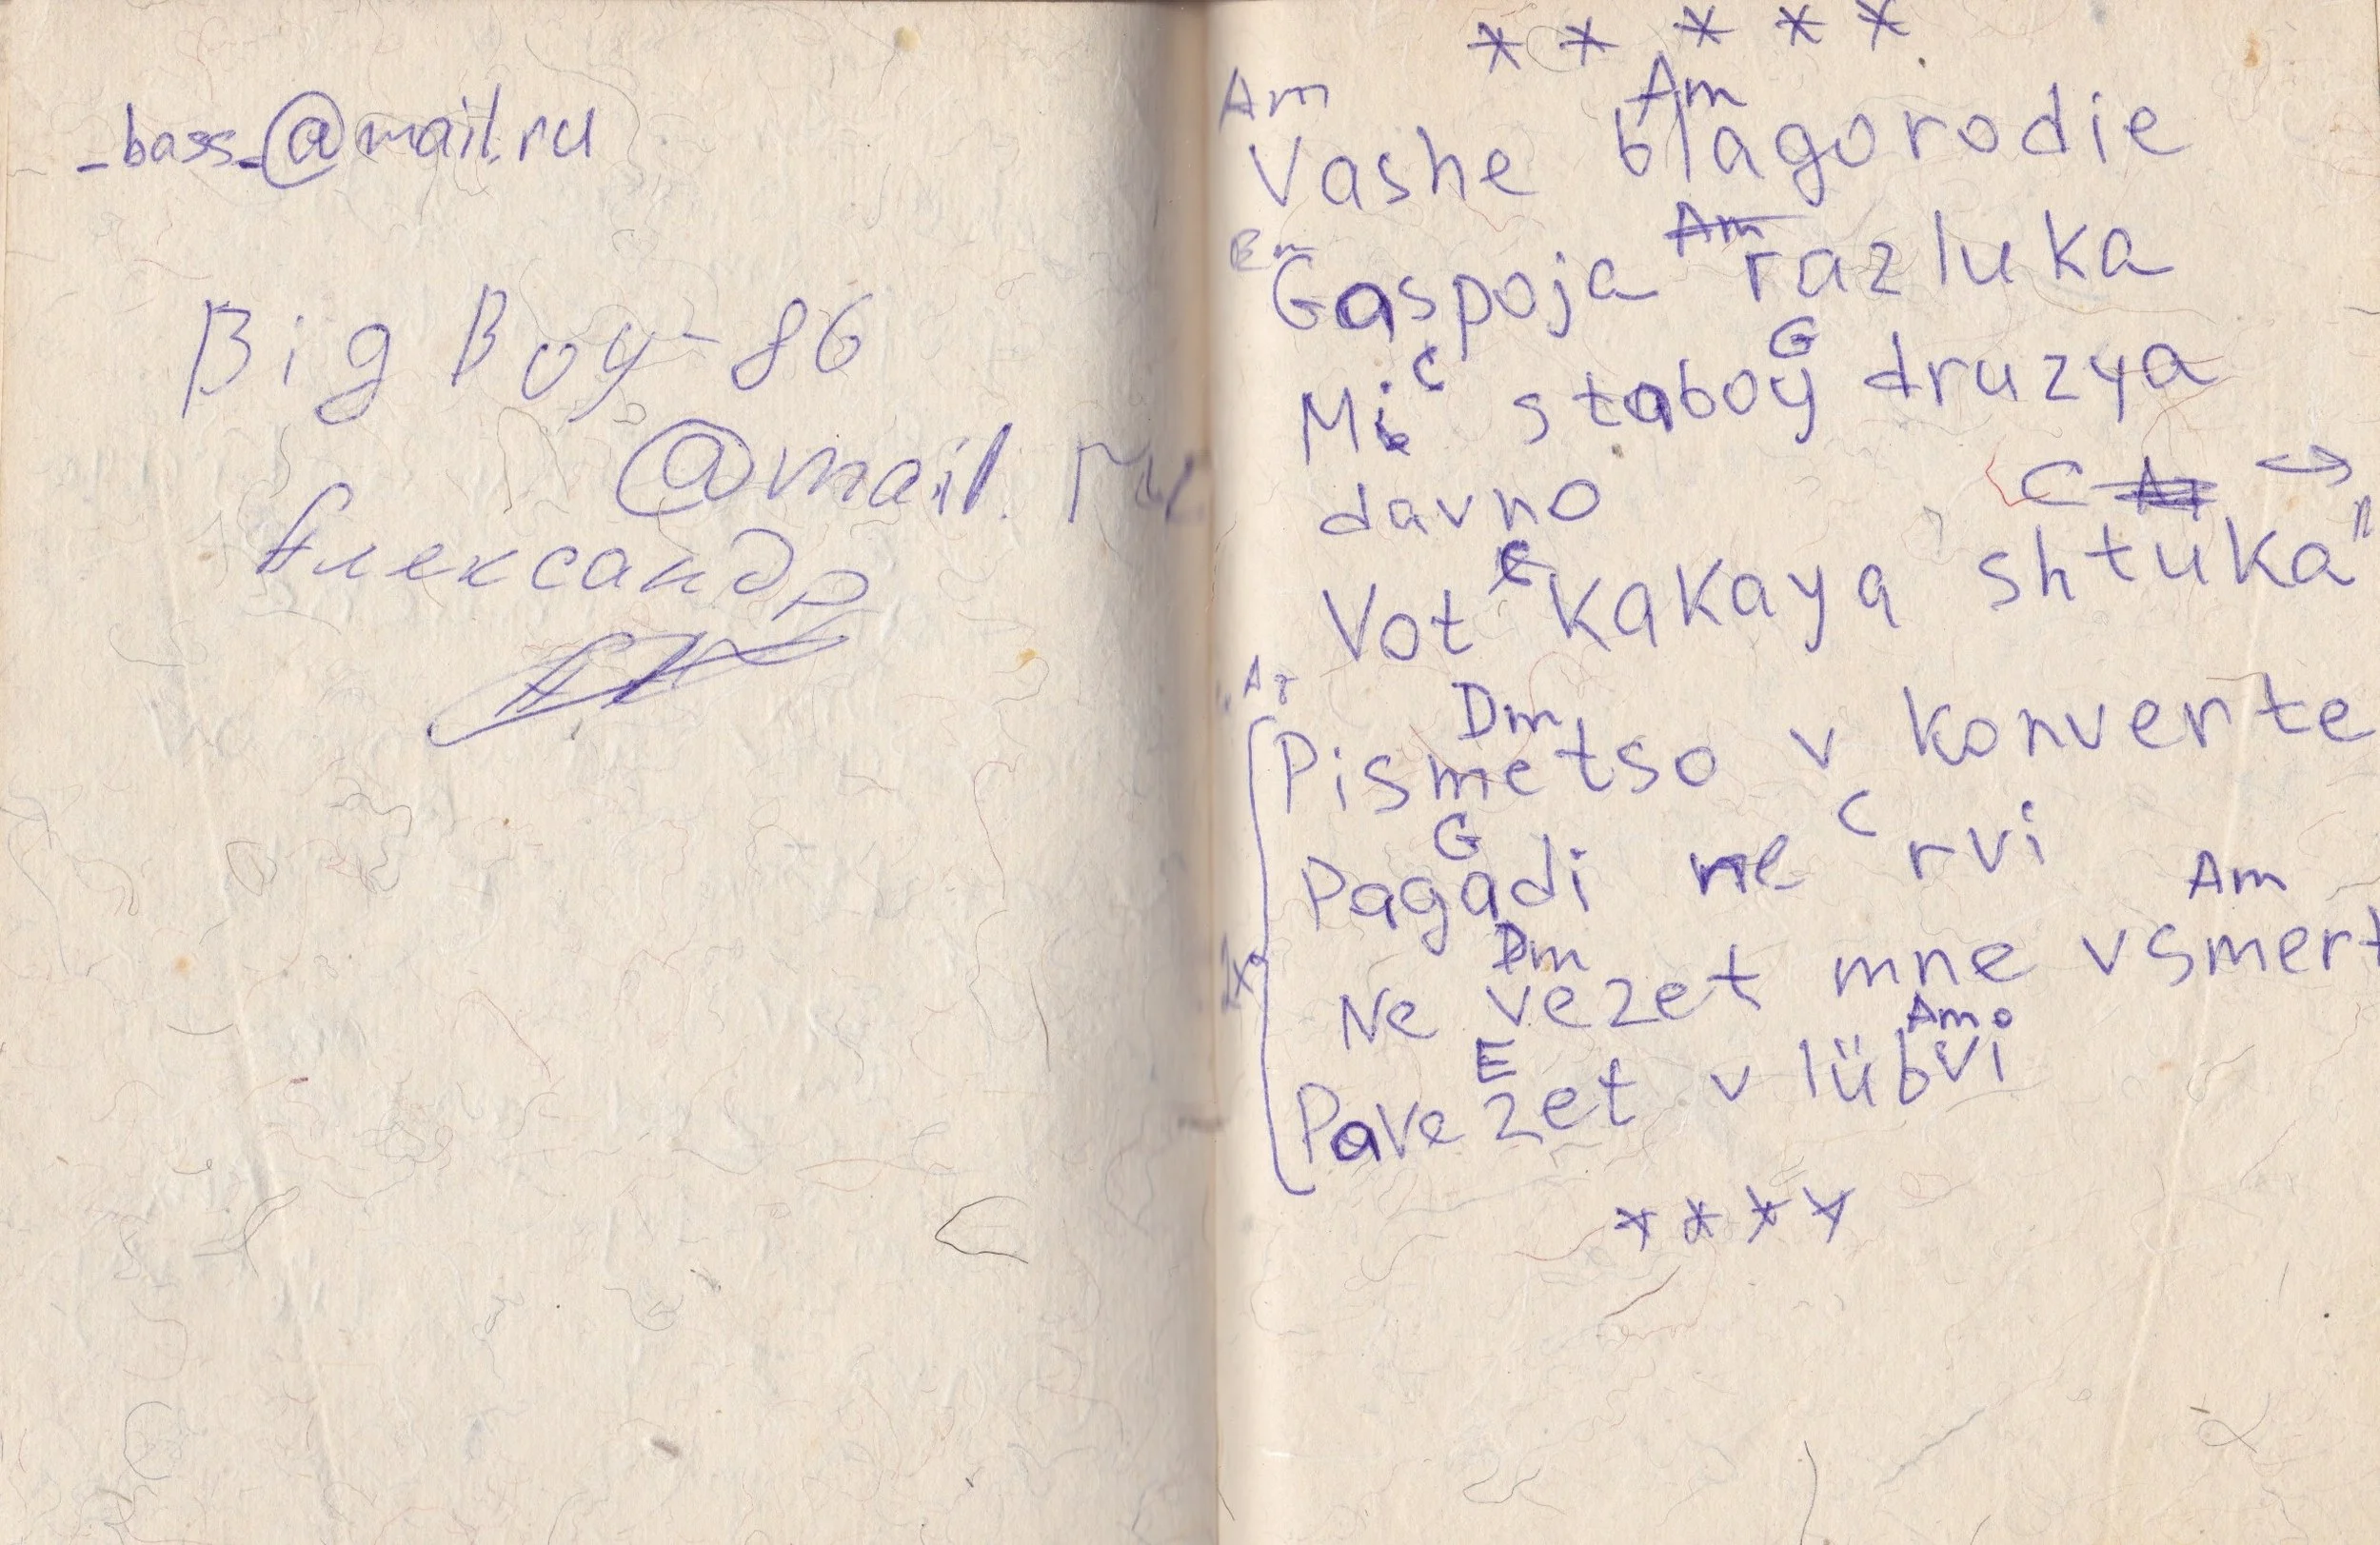 _bass_@mail.ru
Big Boy-86
@mail.ru
Александр
* * * * *
Am Am
Vashe blagorodie
Em Am
Gaspoja razluka
C G
Mi staboy druzya
davno
C C
Vot kakaya shtuka"
A7 Dm
Pismetso v konverte
G C
Pagadi ne rvi
Dm Am
2x Ne vezet mne v smert
E Am
Pavezet v lübvi
* * * *